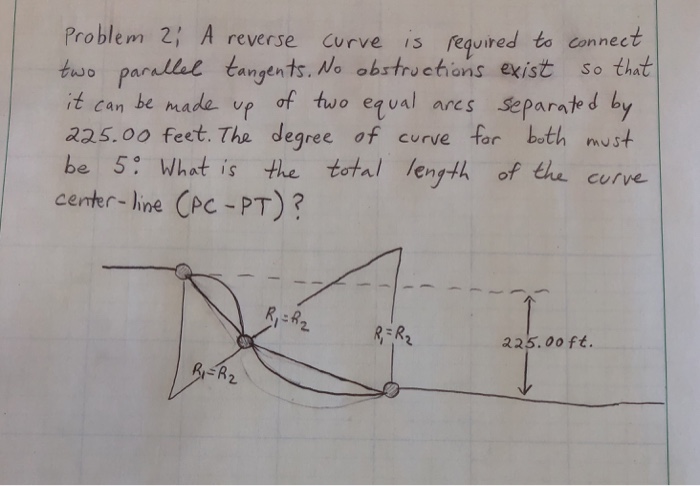 Problem 2; A reverse curve is required to connect
two parallel tangents. No obstructions exist so that
it can be made up of two equal arcs separated by
225.00 feet. The degree of curve for both must
be 5°. What is the total length of the curve
center-line (PC-PT)?
R₁=R₂
R₁=R₂
225.00 ft.
R₁=R₂